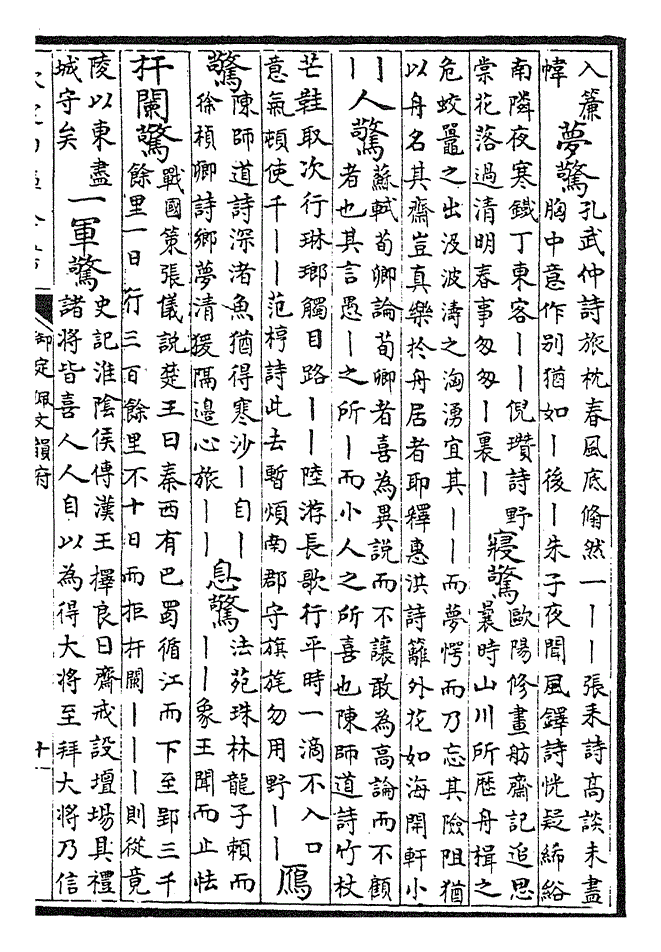 入簾
幃
夢驚
孔武仲詩旅枕春風底翛然一丨丨張耒詩高談未盡
胸中意作别猶如丨後丨朱子夜聞風鐸詩恍疑絺綌
南隣夜寒鐵丁東客丨丨倪瓚詩野
棠花落過清明春事匆匆丨裏丨
寢驚
歐陽修畫舫齋記追思
曩時山川所歴舟楫之
危蛟鼉之出没波濤之洶湧宜其丨丨而夢愕而乃忘其險阻猶
以舟名其齋豈真樂於舟居者耶釋惠洪詩籬外花如海開軒小
丨
丨
人驚
蘇軾荀卿論荀卿者喜為異説而不讓敢為高論而不顧
者也其言愚丨之所丨而小人之所喜也陳師道詩竹杖
芒鞋取次行琳瑯觸目路丨丨陸游長歌行平時一滴不入口
意氣頓使千丨丨范梈詩此去暫煩南郡守旗旄勿用野丨丨
鴈驚
陳師道詩深渚魚猶得寒沙丨自丨
徐禎卿詩鄉夢清猨隔邊心旅丨丨
息驚
法苑珠林龍子頼而
丨丨象王聞而止怯
扞關驚
戰國策張儀説楚王曰秦西有巴蜀循江而下至郢三千
餘里一日行三百餘里不十日而拒扞關丨丨丨則從竟
陵以東盡
城守矣
一軍驚
史記淮陰侯傳漢王擇良日齋戒設壇場具禮
諸將皆喜人人自以為得大將至拜大將乃信
御定佩文韻府